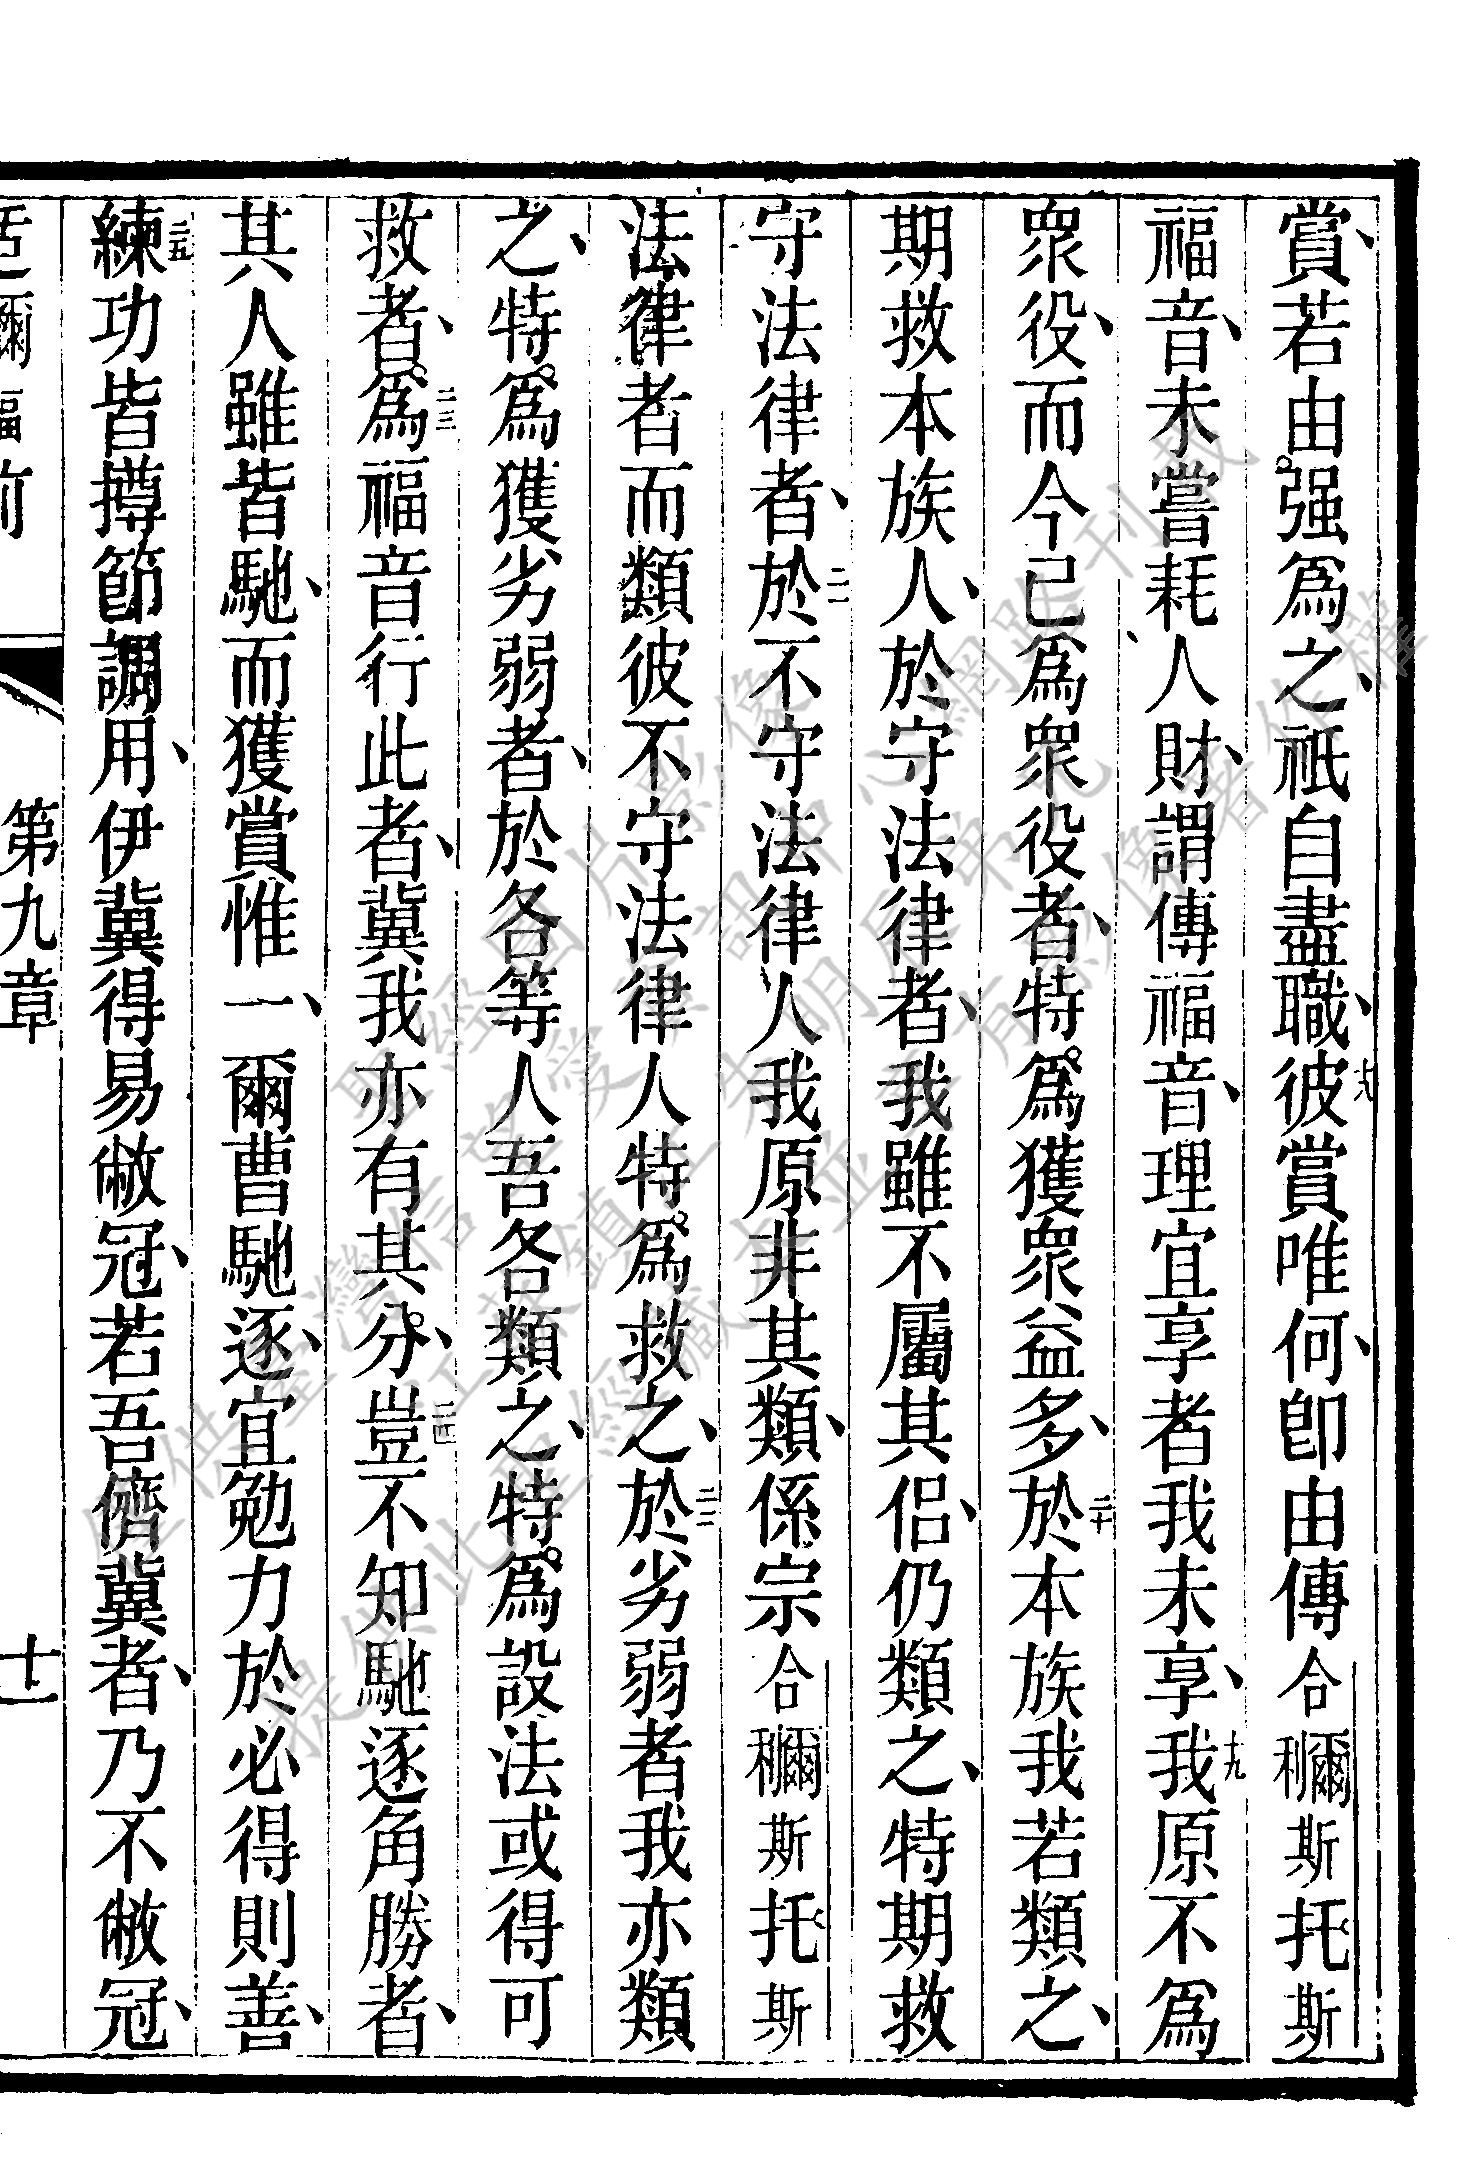 賞、若由强爲之、祇自盡職、十八彼賞唯何、卽由傳合利爾斯托斯
福音、未嘗耗人財、謂傳福音、理宜享者我未享、十九我原不爲
眾役、而今已爲眾役者、特爲獲眾益多、二十於本族我若類之、
期救本族人、於守法律者、我雖不屬其侶、仍類之、特期救
守法律者、二一於不守法律人我原非其類、係宗合利爾斯托斯
法律者而類彼不守法律人特爲救之、二二於劣弱者我亦類
之、特爲獲劣弱者、於各等人吾各類之、特爲設法或得可
救者、二三爲福音行此者、冀我亦有其分、二四豈不知馳逐角勝者、
其人雖皆馳、而獲賞惟一、爾曹馳逐、宜勉力於必得則善、
二五練功皆撙節調用、伊冀得易敝冠、若吾儕冀者、乃不敝冠、
福前
第九章
十一